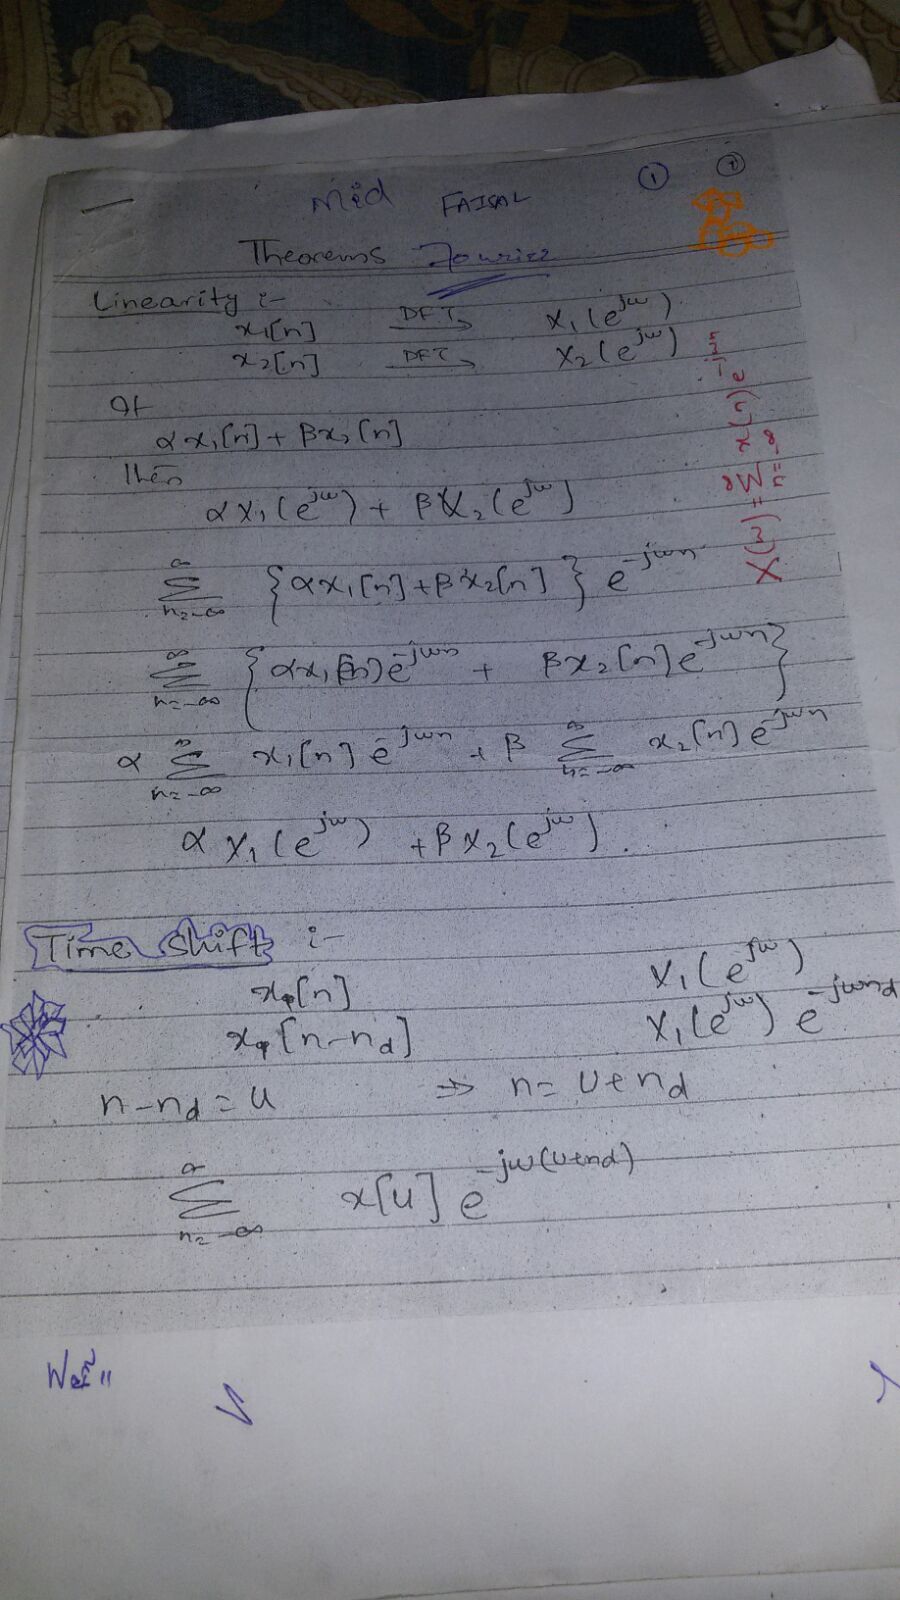 Mid FAISAL ① ①
Theorems Fourier
Linearity :-
x₁[n] DFT→ X₁(e^jω)
x₂[n] DFT→ X₂(e^jω)
If
αx₁[n] + βx₂[n]
Then
αX₁(e^jω) + βX₂(e^jω)
∞Σn=-∞ {αx₁[n]+βx₂[n]} e^-jωn
∞Σn=-∞ {αx₁[n]e^-jωn + βx₂[n]e^-jωn}
α ∞Σn=-∞ x₁[n] e^-jωn + β ∞Σn=-∞ x₂[n] e^-jωn
αX₁(e^jω) + βX₂(e^jω).
X(ω) = ∞Σn=-∞ x(n) e^-jωn
Time Shift :-
x₁[n] X₁(e^jω)
x₁[n-nd] X₁(e^jω) e^-jωnd
n-nd = u ⇒ n = u+nd
∞Σn=-∞ x[u] e^-jω(u+nd)